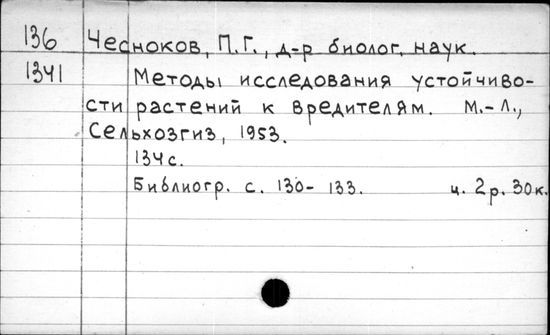 136 Чесноков, П.Г., д-р биолог. наук.
1341 Методы исследования устойчиво-
сти растений к вредителям. М.-Л.,
Сельхозгиз, 1953.
134с.
Библиогр. с. 130-133. ц. 2р. 30к.